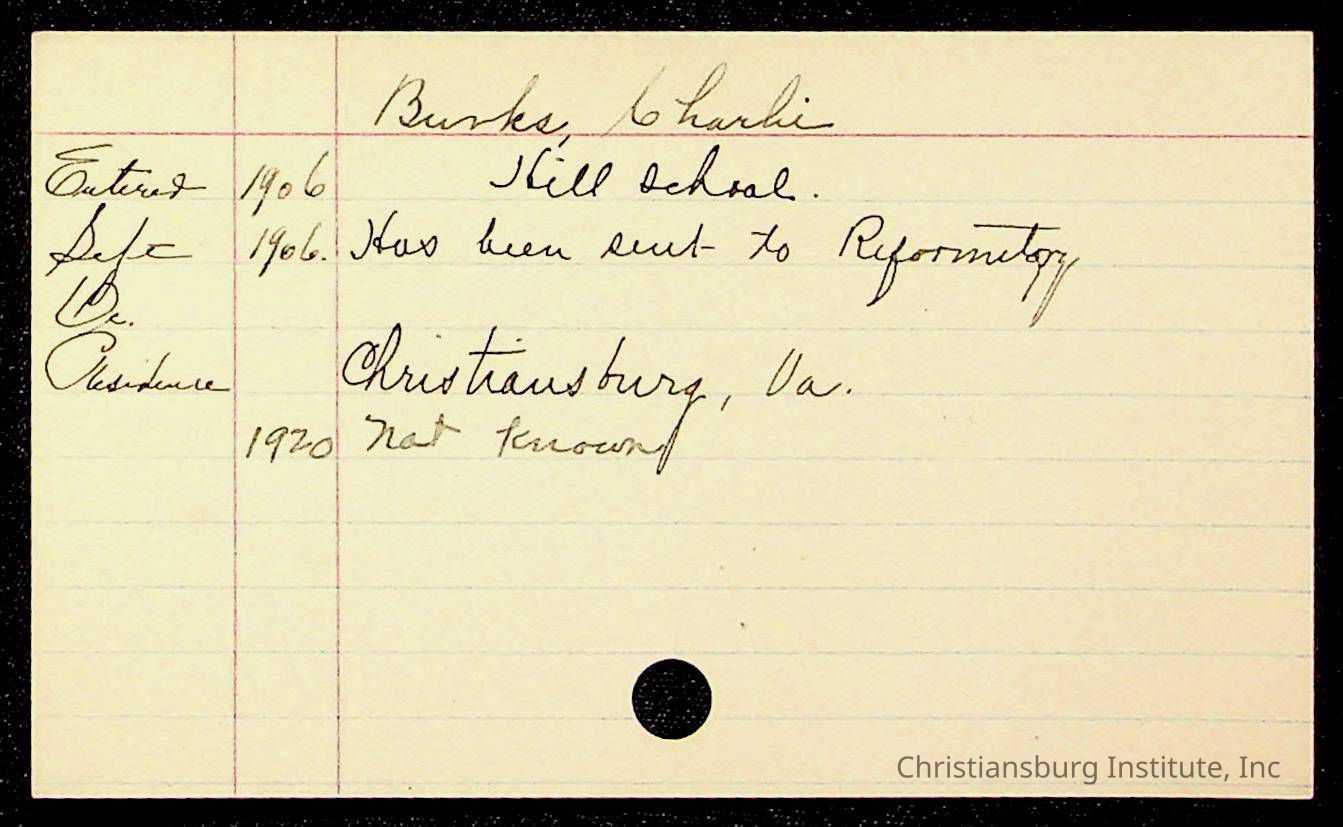 Burks, Charlie
Entered 1906 Hill school.
Left 1906. Has been sent to Reformetory
Oc.
Residence Christiansburg, Va.
1920 Not known
Christiansburg Institute, Inc